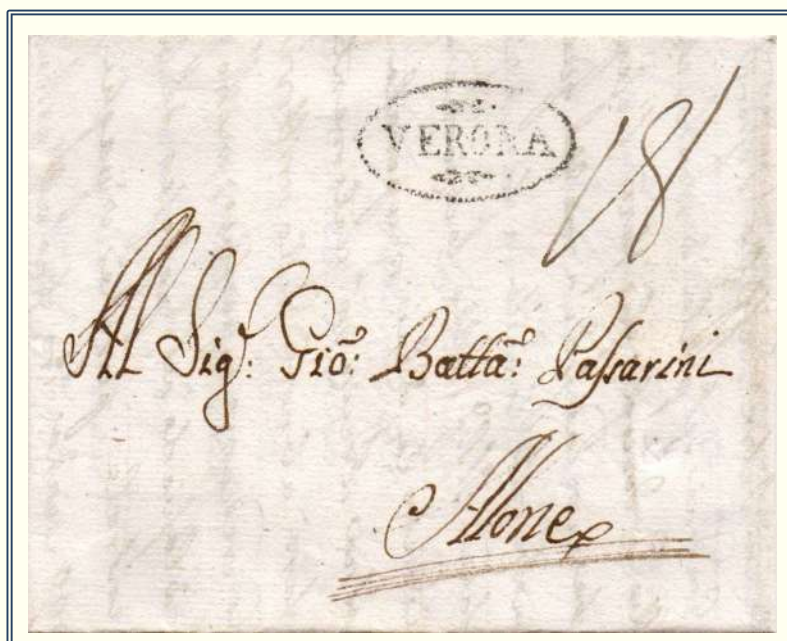 VERONA
18
All Sigr: Giõ: Battã: Paſsarini
Alone